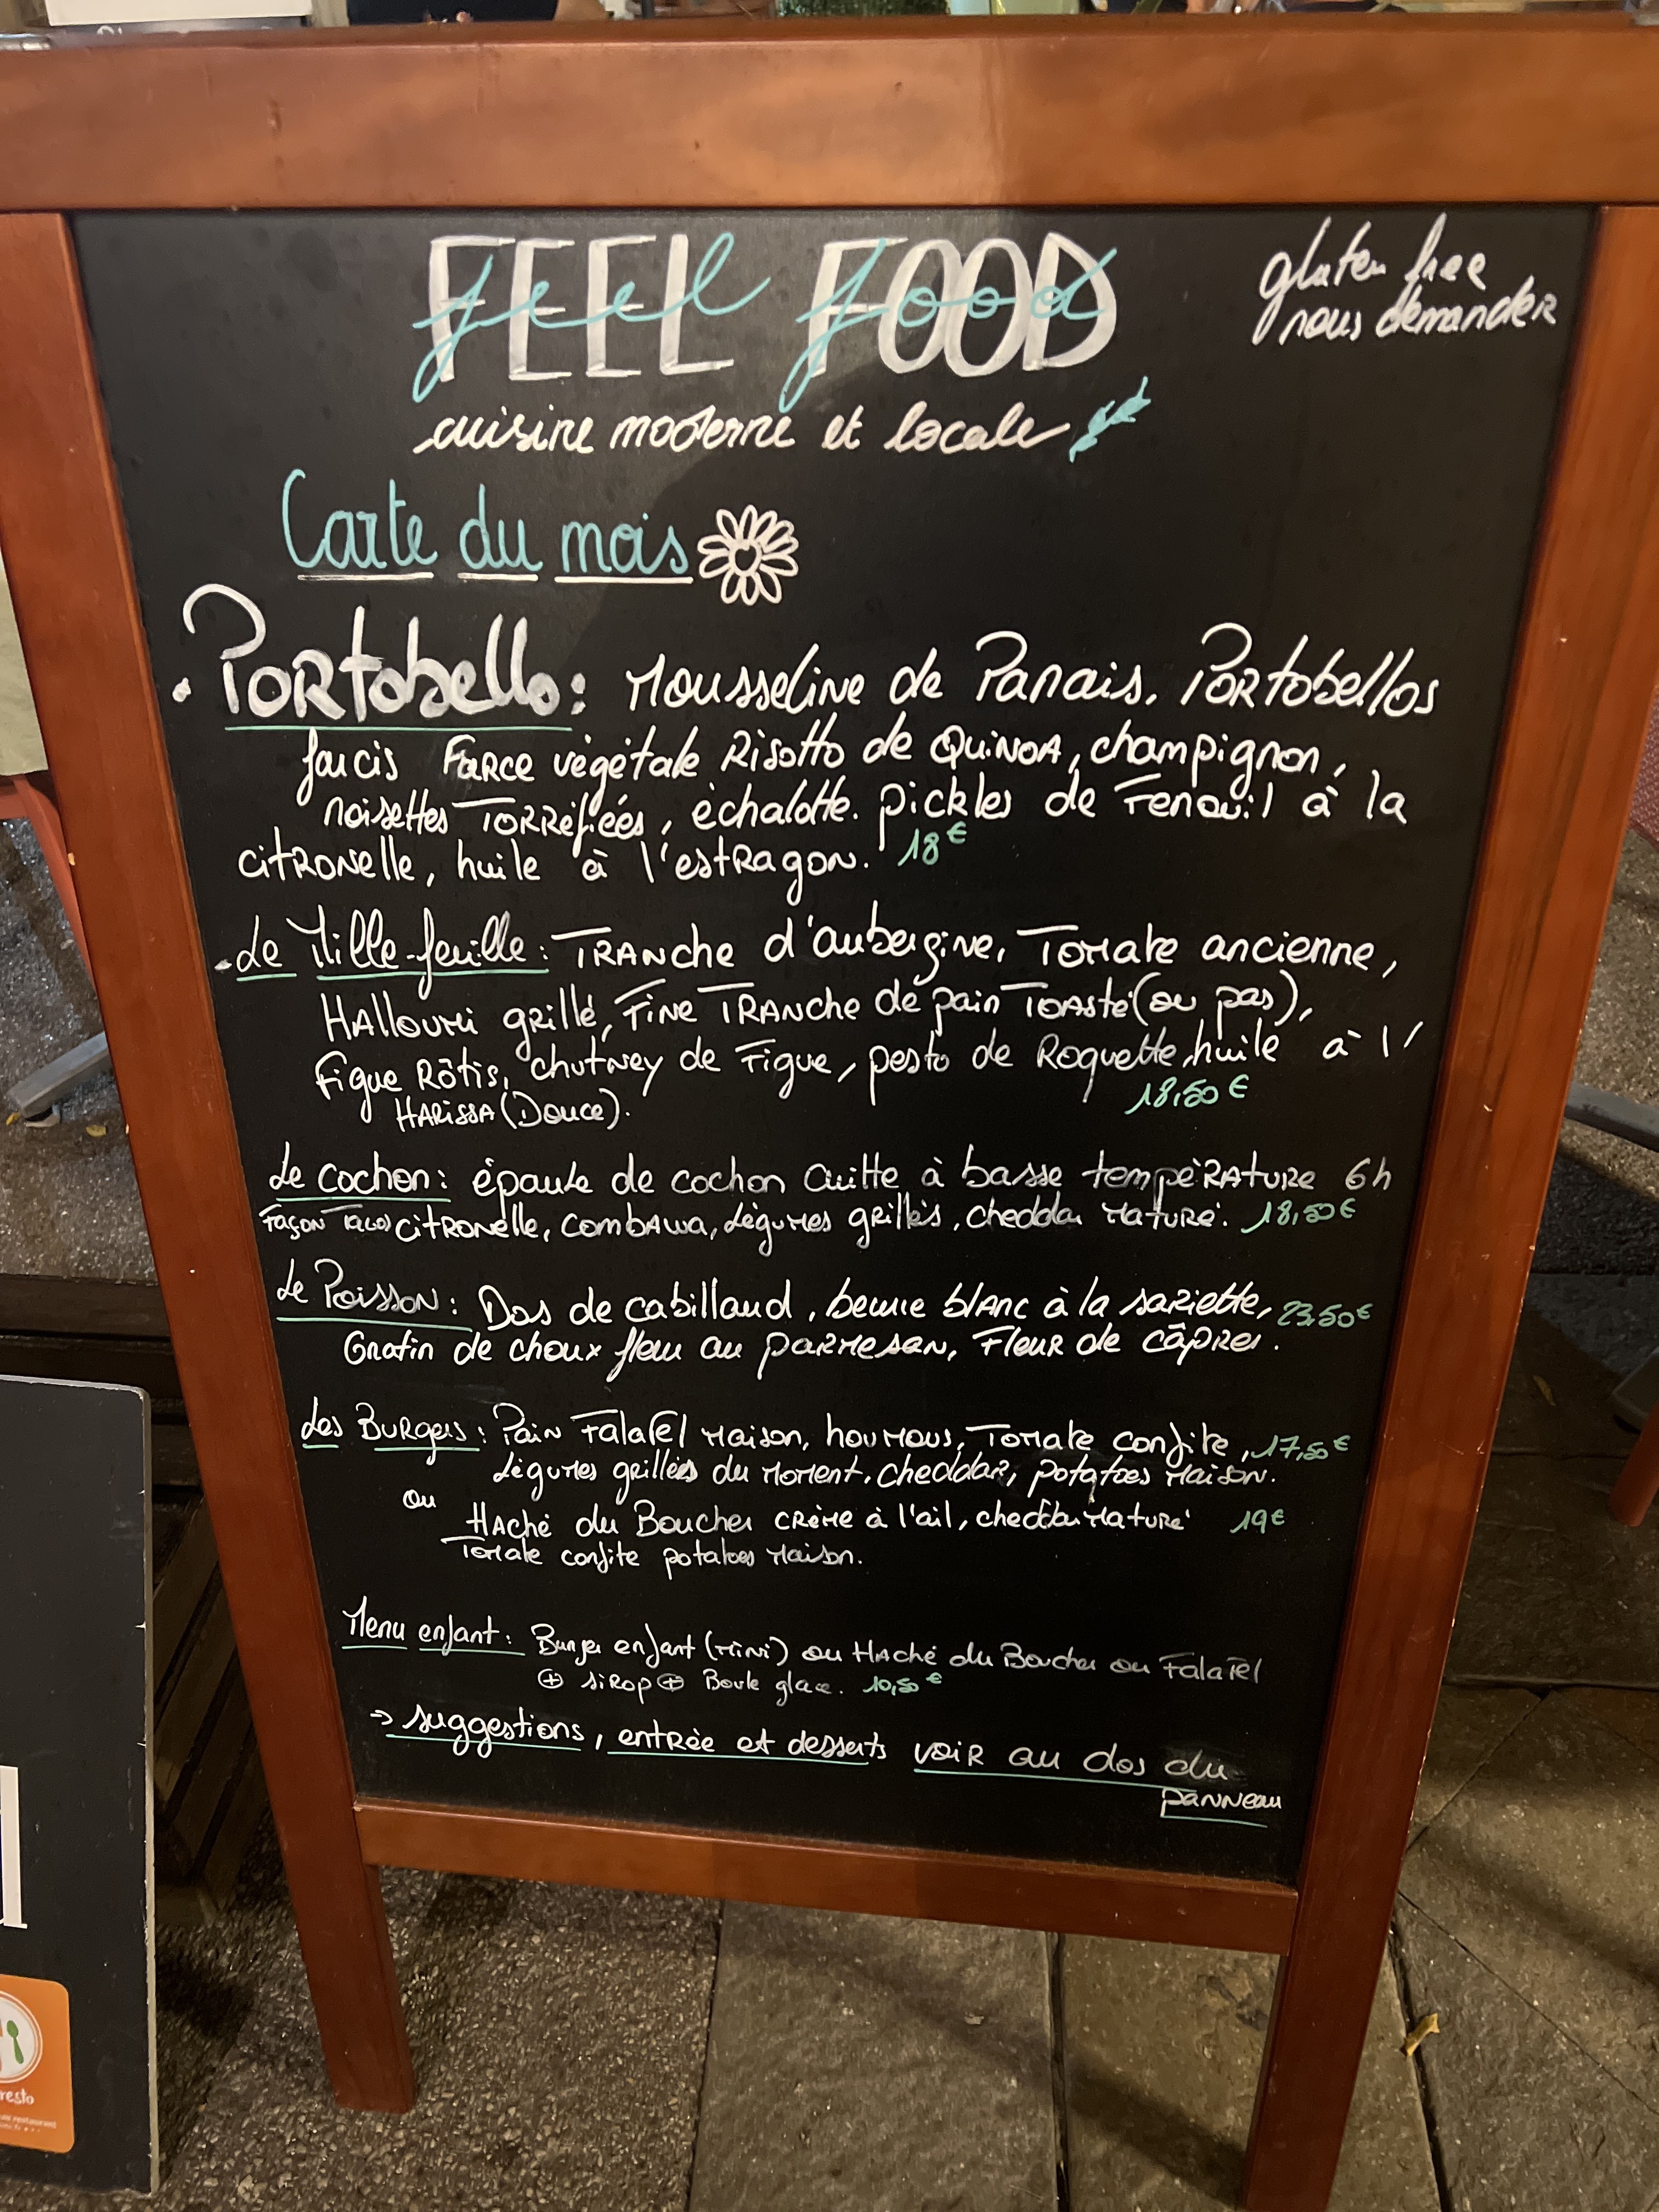 FEEL FOOD
feel food
gluten free
nous demander
cuisine moderne et locale
Carte du mois
. Portobello : Mousseline de Panais, Portobellos
farcis Farce végétale Risotto de Quinoa, champignon,
noisettes Torréfiées, échalotte. pickles de Fenouil à la
citronelle, huile à l'estragon. 18€
. Le Mille-feuille : Tranche d'aubergine, Tomate ancienne,
Halloumi grillé, Fine Tranche de pain Toasté (ou pas),
figue Rôtis, chutney de Figue, pesto de Roquette, huile à l'
Harissa (Douce). 18,50€
Le Cochon : épaule de cochon Cuitte à basse température 6h
Façon Tacos citronelle, combawa, légumes grillés, cheddar mature. 18,50€
Le Poisson : Dos de cabillaud, beurre blanc à la sariette, 23,50€
Gratin de choux fleur au parmesan, Fleur de câpres.
Les Burgers : Pain Falafel Maison, houmous, Tomate confite, 17,50€
légumes grillées du moment, cheddar, potatoes maison.
ou
Haché du Boucher crème à l'ail, cheddar mature 19€
Tomate confite potatoes maison.
Menu enfant : Burger enfant (mini) ou Haché du Boucher ou Falafel
⊕ sirop ⊕ Boule glace. 10,50€
→ suggestions, entrée et desserts voir au dos du
panneau
resto